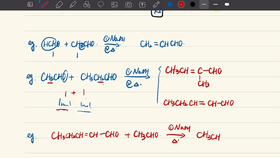 eg. HCHO + CH₃CHO ①NaOH ②Δ CH₂ = CHCHO
eg. CH₃CHO + CH₃CH₂CHO ①NaOH ②Δ.
CH₃CH = C — CHO
CH₃
1 + 1
1mol 1mol
CH₃CH₂CH = CH-CHO
eg. CH₃CH₂CH = CH - CHO + CH₃CHO ①NaOH Δ. CH₃CH